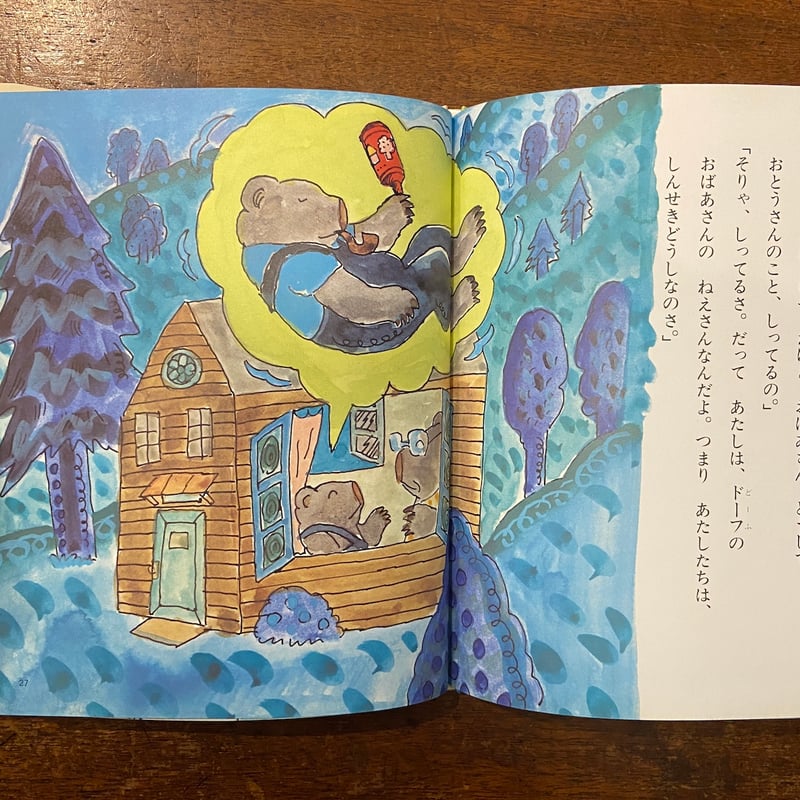 おとうさんのこと、しってるの。」
「そりゃ、しってるさ。だって　あたしは、ドーフの
おばあさんの　ねえさんなんだよ。つまり　あたしたちは、
しんせきどうしなのさ。」
27